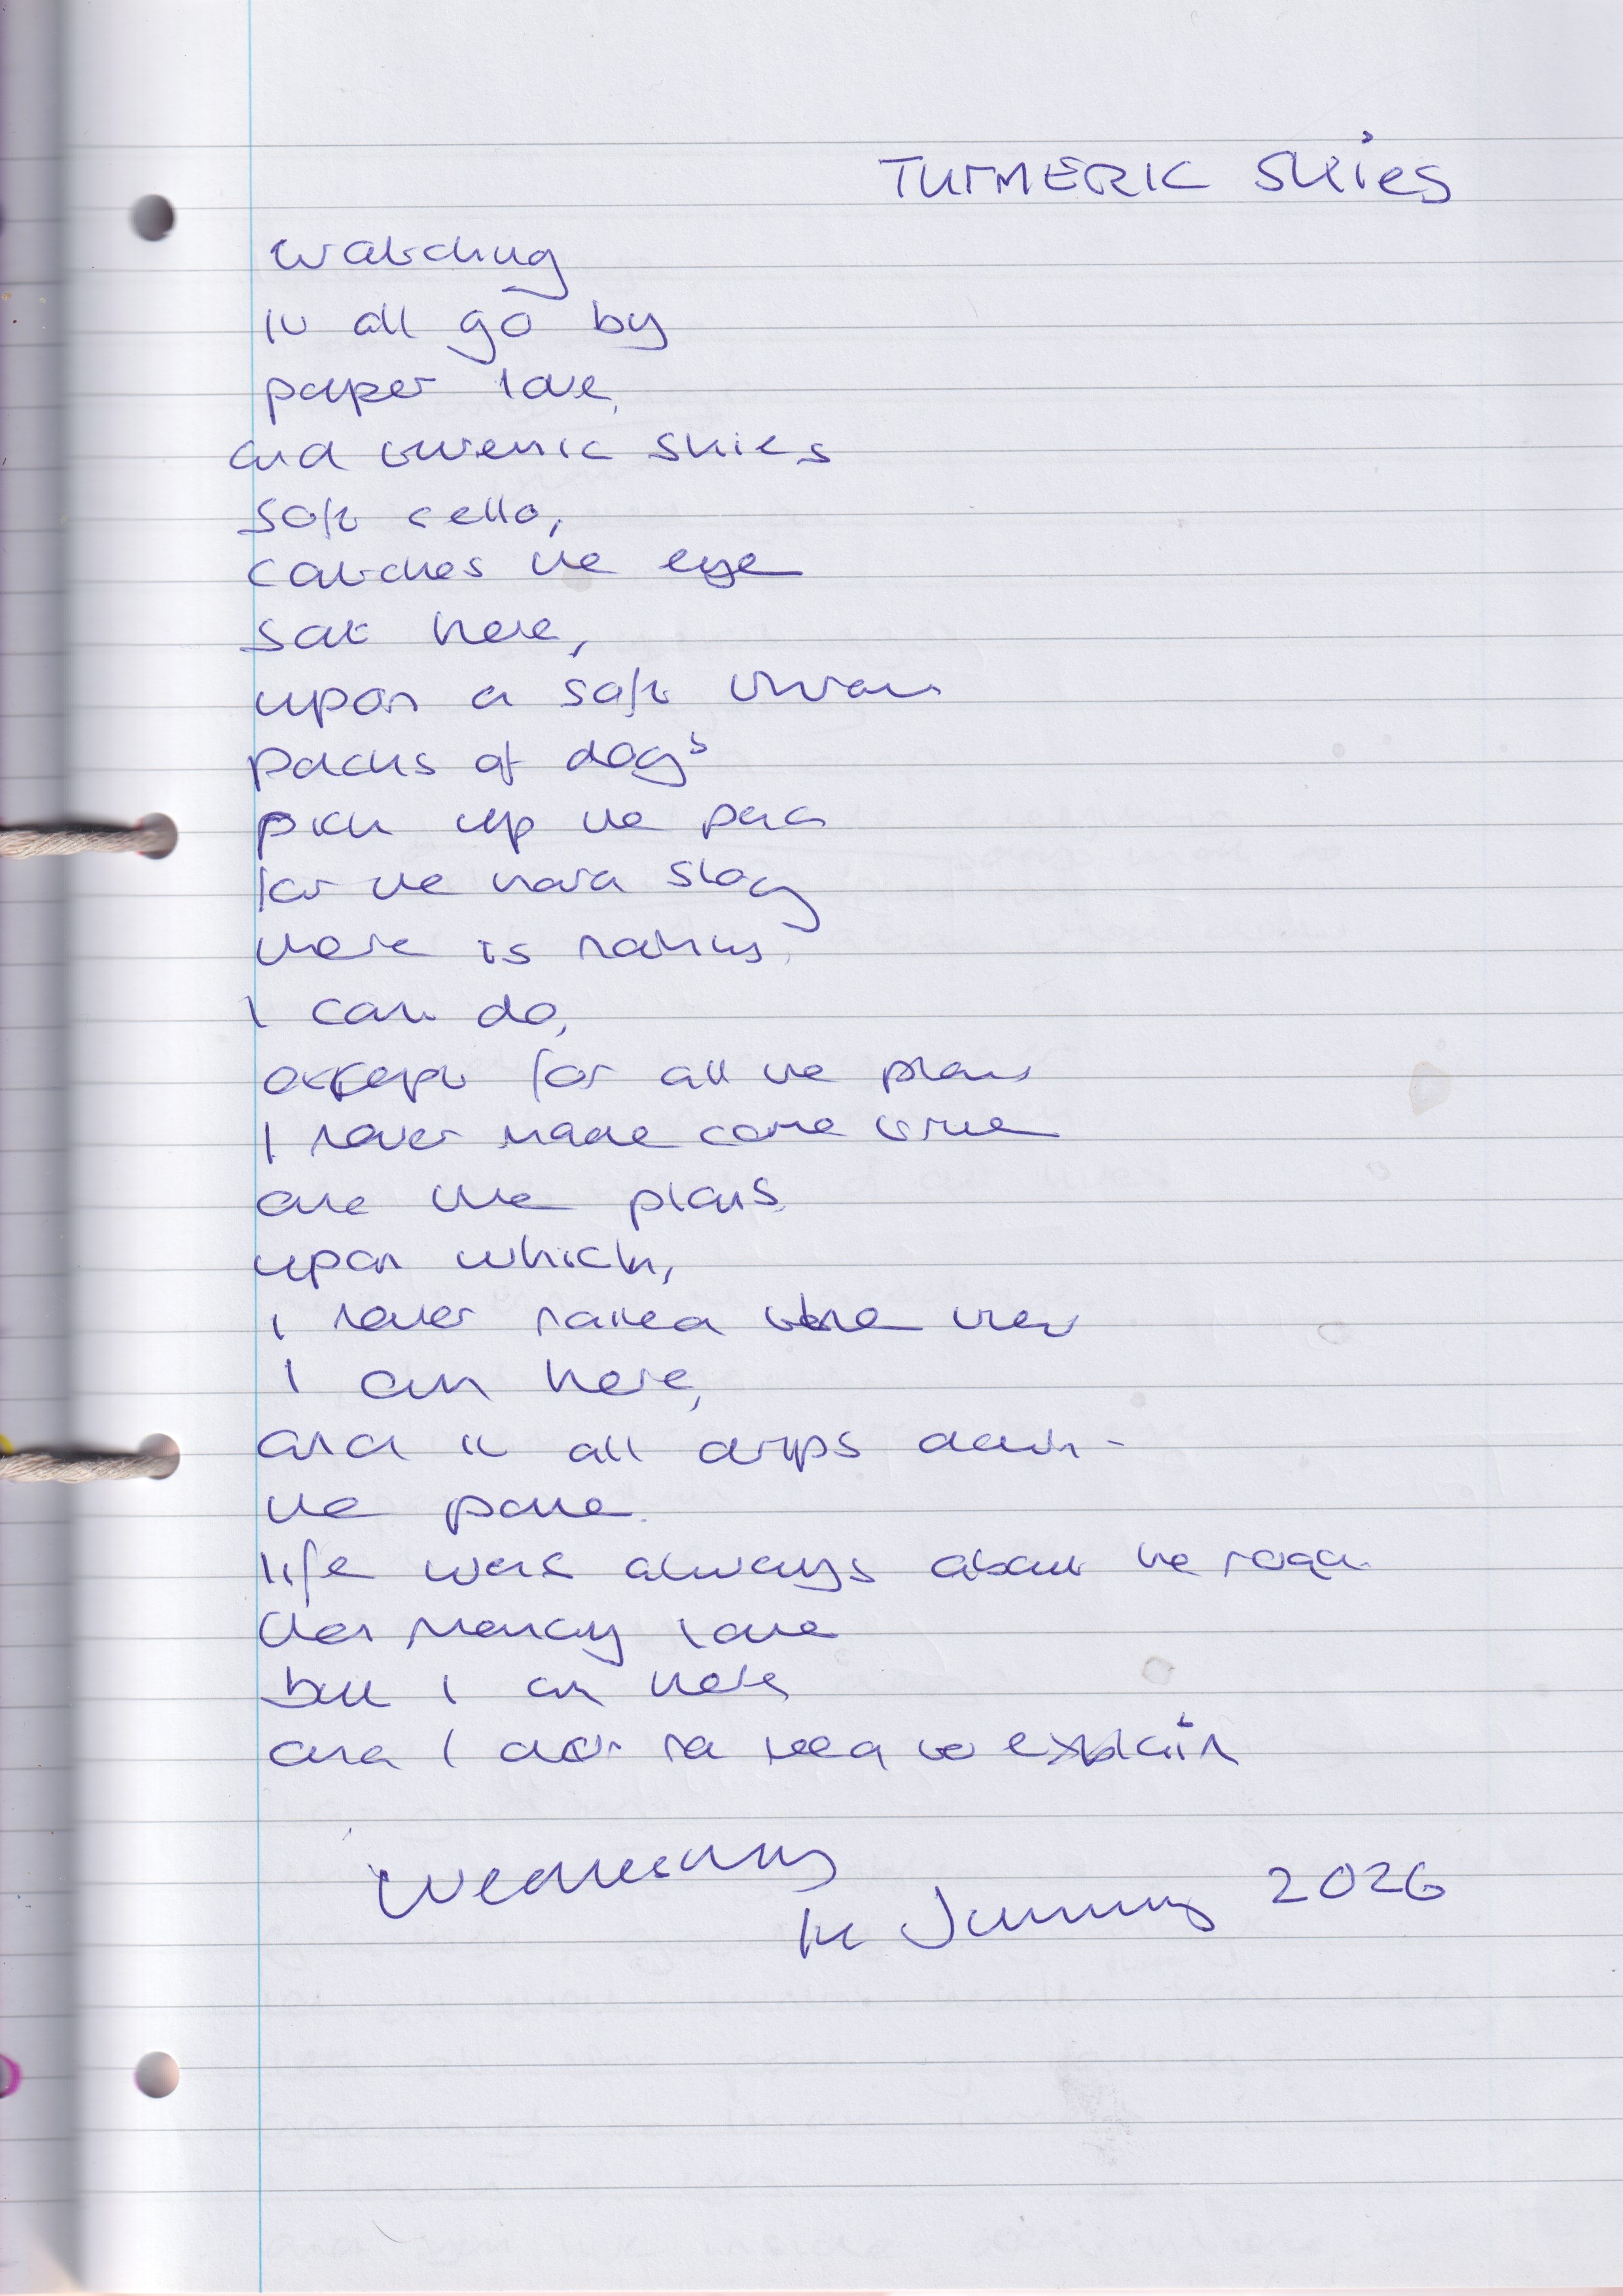 TURMERIC SKIES
watching
it all go by
paper love,
and turmeric skies
soft cello,
catches the eye
sat here,
upon a soft
packs of dogs
pick up the pace
for the hard slog
there is nothing
I can do,
except for all the plans
I never made come true
are the plans
upon which,
I never nailed the view
I am here,
and it all drips down -
the pane.
life was always about the road
then money love
but I am here,
and I do need to explain
Wednesday
in January 2026